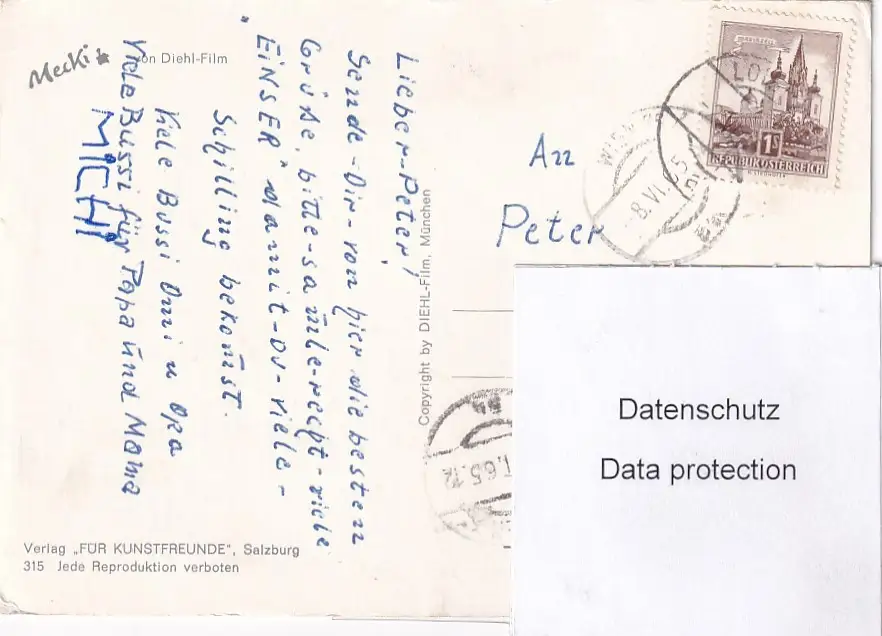 Mecki
von Diehl-Film
Lieber-Peter!
Sende-Dir-von hier die besten
Grüße, bitte-sam̄le-recht-viele
"EiNSER" damit-du-viele-
Schilling bekom̄st.
Viele Bussi Omi u Opa
Viele Bussi für Papa und Mama
MiCHi
Copyright by DIEHL-Film, München
Verlag „FÜR KUNSTFREUNDE", Salzburg
315 Jede Reproduktion verboten
An
Peter
1S
REPUBLIK ÖSTERREICH
WIEN
-8.VI.65
.65.12
Datenschutz
Data protection